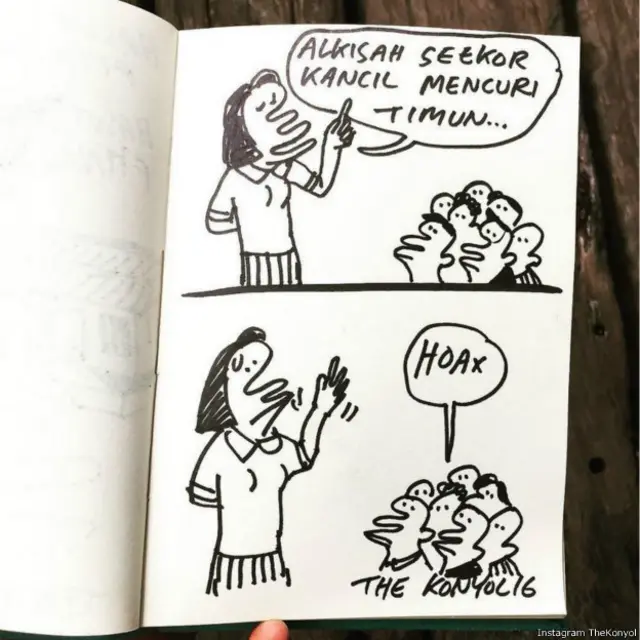 ALKISAH SEEKOR
KANCIL MENCURI
TIMUN...
HOAX
THE KONYOL16
Instagram TheKonyol